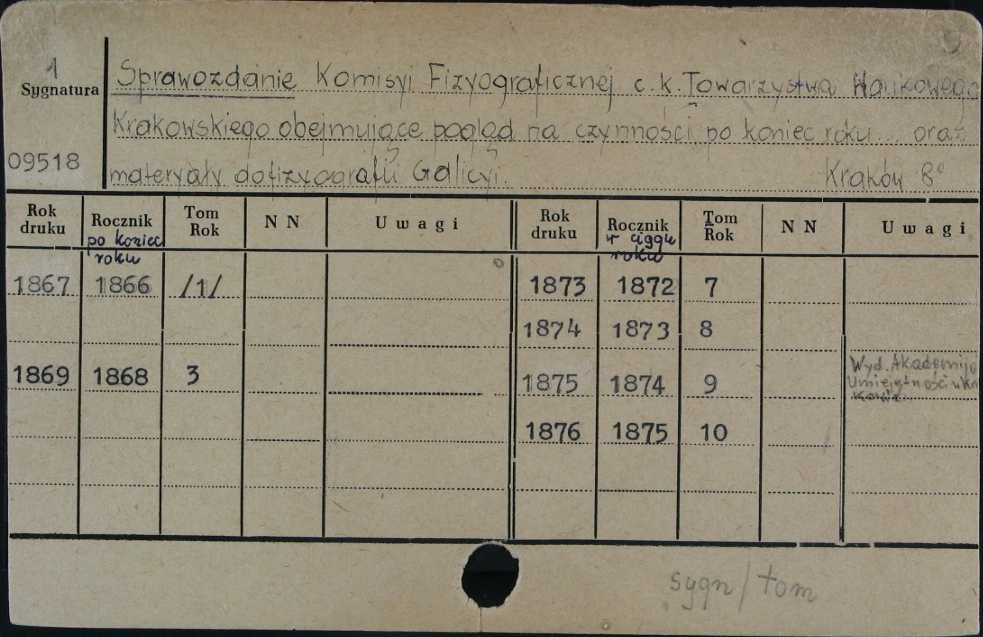 1
Sygnatura
09518
Sprawozdanie Komisyi Fizyograficznej c.k. Towarzystwa Naukowego
Krakowskiego obejmujące pogląd na czynności po koniec roku... oraz
materyały do fizyografii Galicyi. Kraków 8°
Rok druku Rocznik po koniec roku Tom Rok N N Uwagi Rok druku Rocznik w ciągu roku Tom Rok N N Uwagi
1867 1866 /1/ 1873 1872 7
1874 1873 8
1869 1868 3 1875 1874 9 Wyd. Akademija
Umiejętności w Kra
kowie
1876 1875 10
sygn/tom